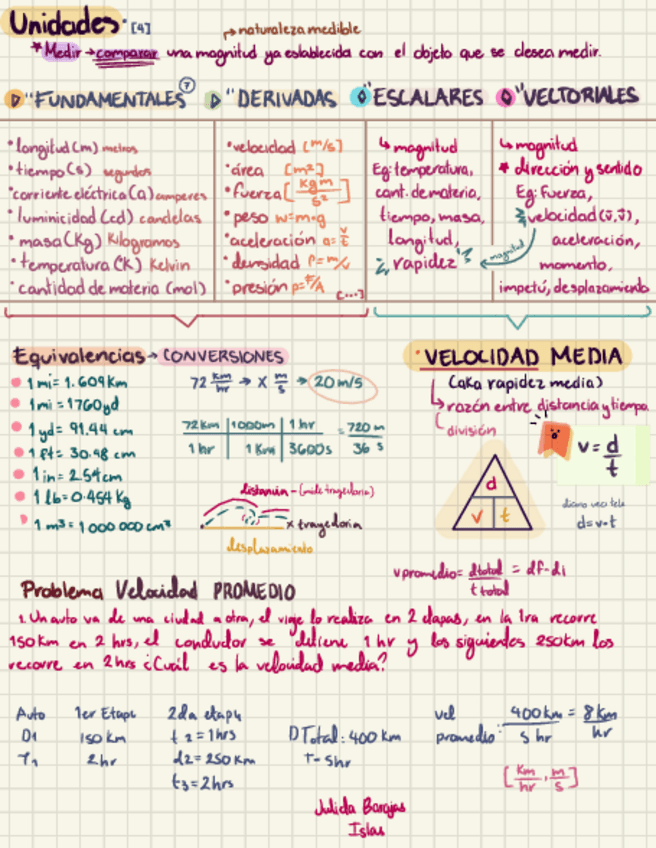 Unidades [4]
naturaleza medible
* Medir → comparar una magnitud ya establecida con el objeto que se desea medir.
"FUNDAMENTALES ⑦ "DERIVADAS "ESCALARES "VECTORIALES
• longitud (m) metros
• tiempo (s) segundos
• corriente eléctrica (a) amperes
• luminicidad (cd) candelas
• masa (Kg) Kilogramos
• temperatura (°K) Kelvin
• cantidad de materia (mol)
• velocidad [m/s]
• área [m²]
• fuerza [kg m / s²]
• peso w=m·g
• aceleración a= v/t
• densidad ρ=m/v
• presión p=F/A
[...]
↳ magnitud
Eg: temperatura,
cant. de materia,
tiempo, masa,
longitud,
rapidez
↳ magnitud
* dirección y sentido
Eg: Fuerza,
velocidad (v̄, v̄),
magnitud
aceleración,
momento,
impetú, desplazamiento
Equivalencias → CONVERSIONES
• 1 mi = 1.609 Km
• 1 mi = 1760 yd
• 1 yd = 91.44 cm
• 1 ft = 30.48 cm
• 1 in = 2.54 cm
• 1 lb = 0.454 Kg
• 1 m³ = 1 000 000 cm³
72 km/hr → x m/s → 20 m/s
72 Km | 1000m | 1 hr = 720 m
1 hr | 1 Km | 3600s 36 s
distancia - (mide trayectoria)
x trayectoria
desplazamiento
• VELOCIDAD MEDIA
(aka rapidez media)
↳ razón entre distancia y tiempo.
división
v = d/t
d
v t
d=v·t
v promedio = d total / t total = df - di
Problema Velocidad PROMEDIO
1. Un auto va de una ciudad a otra, el viaje lo realiza en 2 etapas, en la 1ra recorre
150 km en 2 hrs, el conductor se detiene 1 hr y los siguientes 250km los
recorre en 2 hrs ¿Cuál es la velocidad media?
Auto 1er Etapa 2da etapa
D1 150 km t2 = 1hrs
T1 2hr d2 = 250 Km
t3 = 2hrs
DTotal: 400 km
T- 5hr
vel promedio: 400 km / 5 hr = 8 Km / hr
[Km/hr, m/s]
Julieta Barajas
Islas